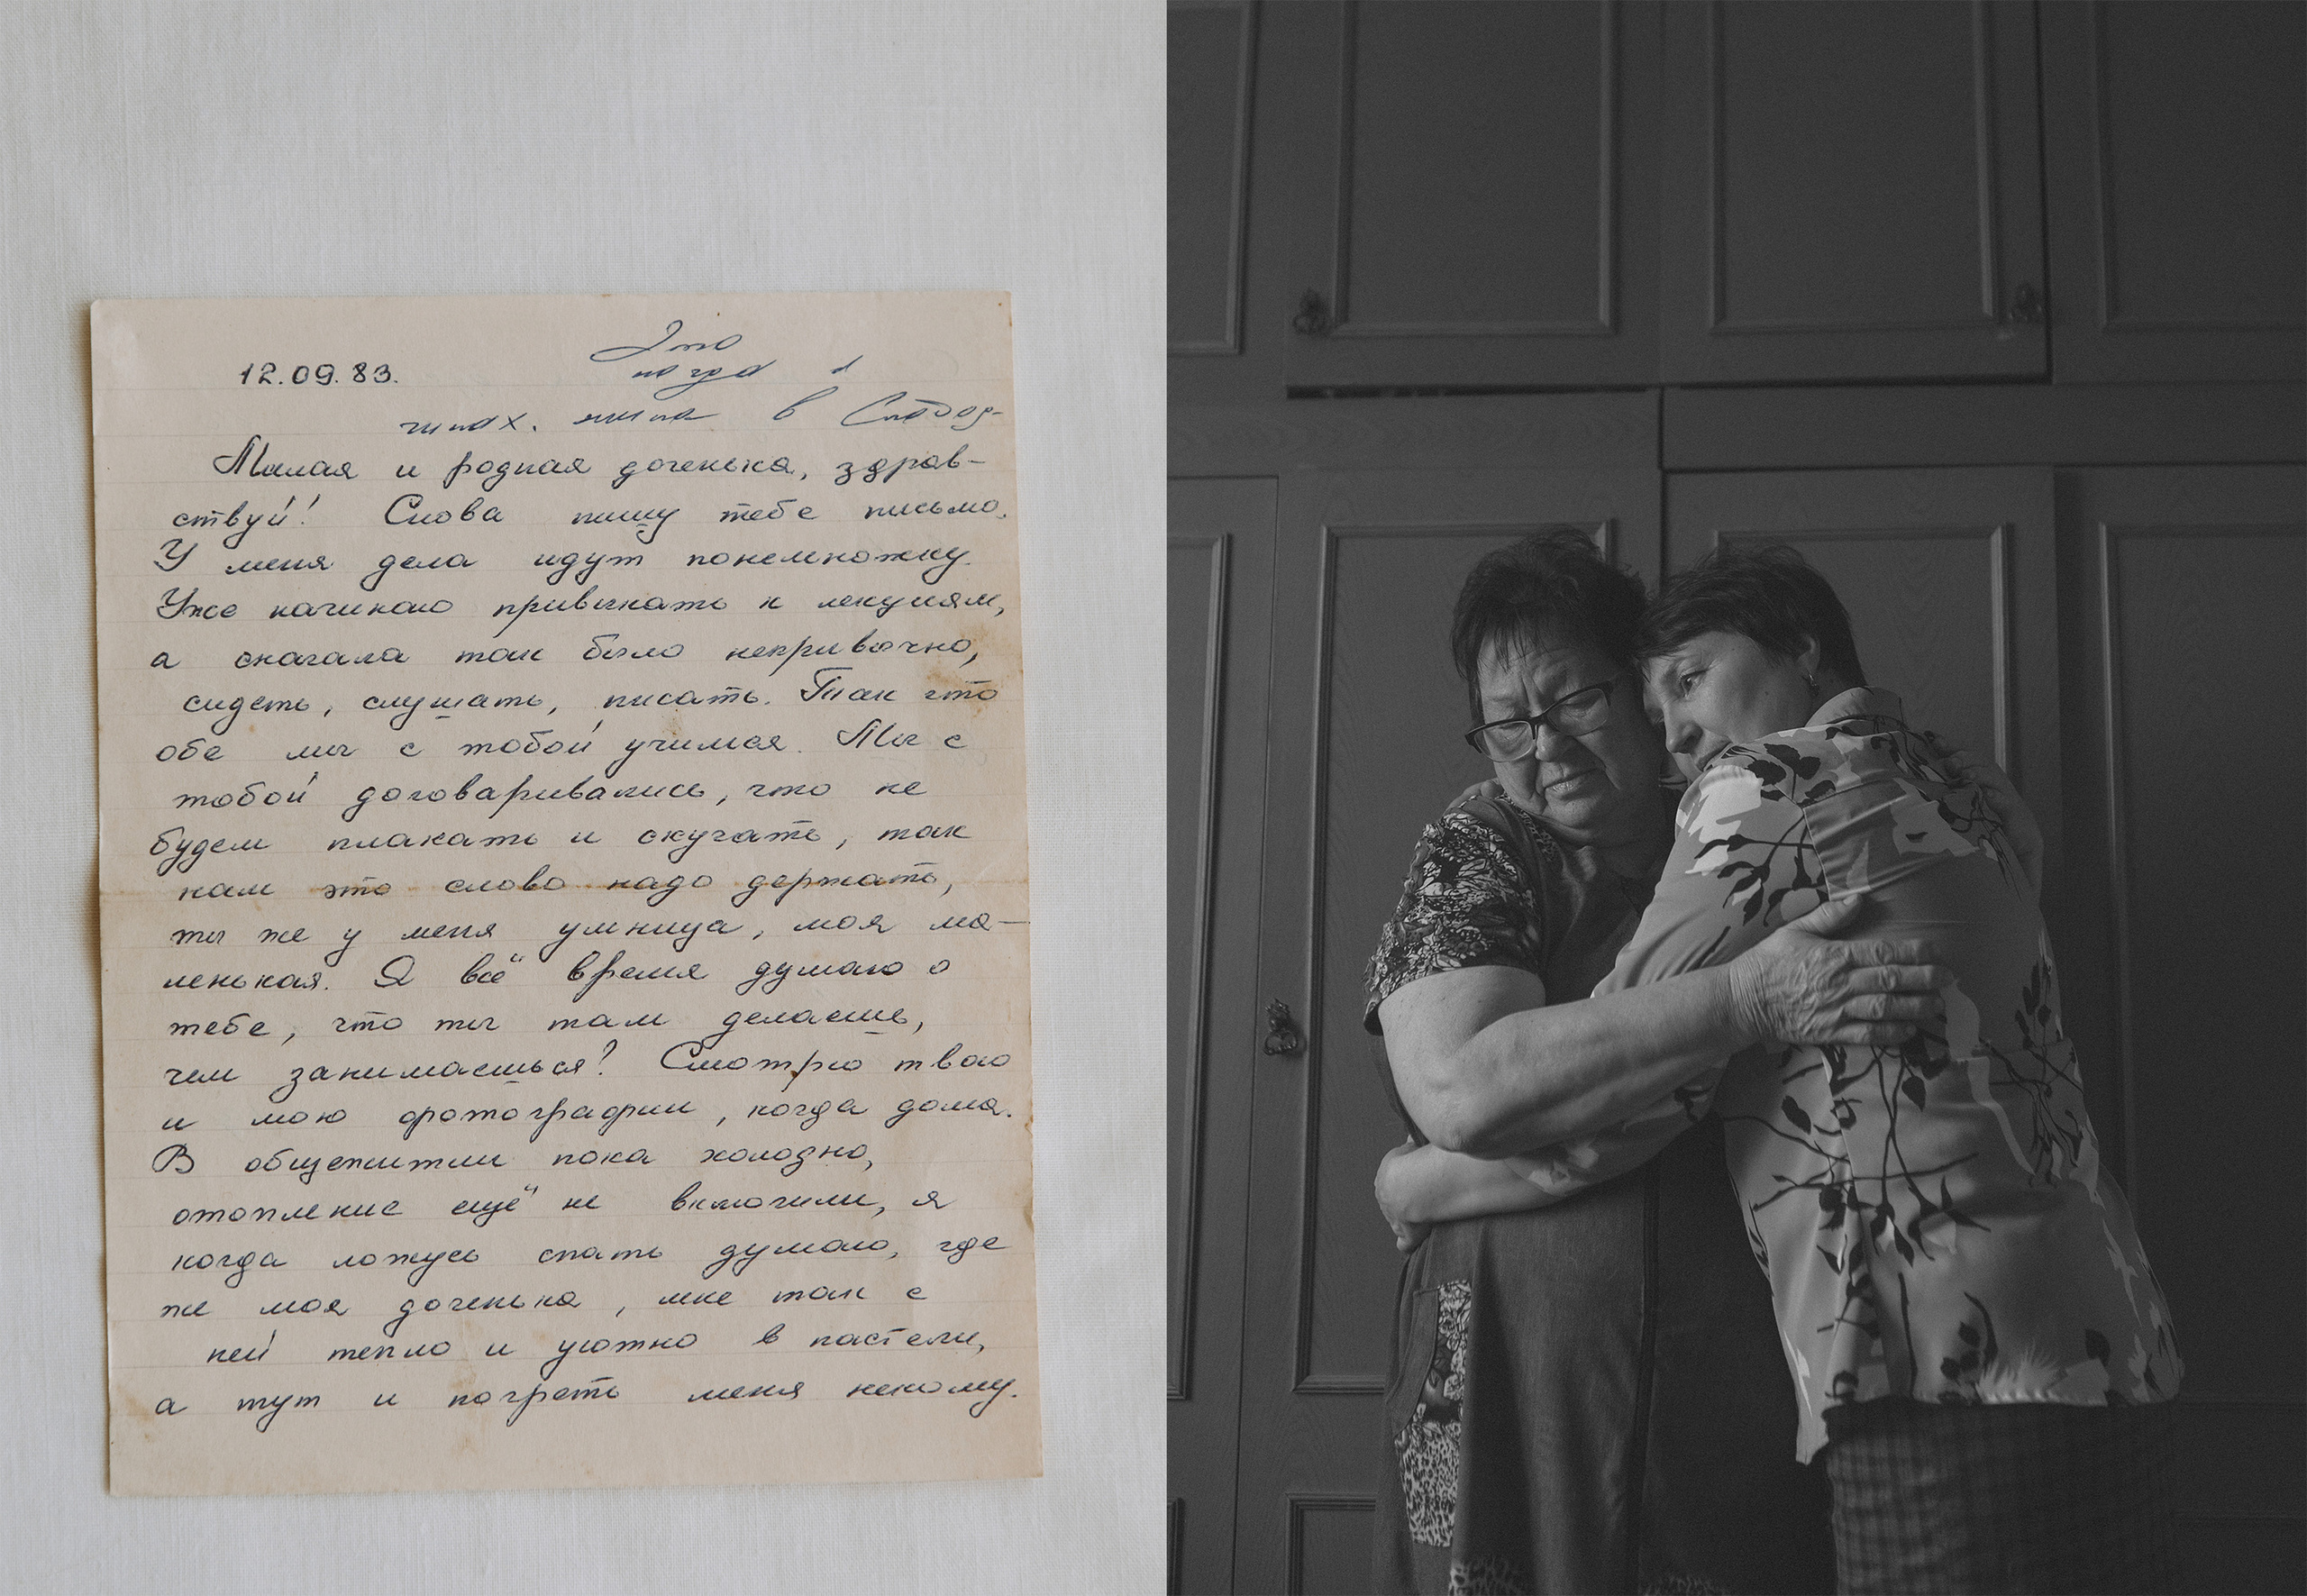 12.09.83.
Это
когда я
жила в Слобод-
Милая и родная доченька, здрав-
ствуй! Снова пишу тебе письмо.
У меня дела идут понемножку.
Уже начинаю привыкать к лекциям,
а сначала так было непривычно,
сидеть, слушать, писать. Так что
обе мы с тобой учимся. Мы с
тобой договаривались, что не
будем плакать и скучать, так
нам это слово надо держать,
ты же у меня умница, моя ма-
ленькая. Я всё время думаю о
тебе, что ты там делаешь,
чем занимаешься? Смотрю твою
и мою фотографии, когда дома.
В общежитии пока холодно,
отопление ещё не включили, я
когда ложусь спать думаю, где
же моя доченька, мне так с
ней тепло и уютно в пастели,
а тут и погреть меня некому.